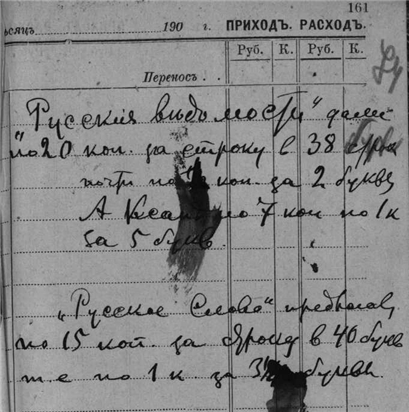 161
мѣсяцъ 190 г. ПРИХОДЪ. РАСХОДЪ.
Руб. К. Руб. К.
Переносъ . .
„Русскія вѣдомости" дали
по 20 коп. за строку в 38
почти по коп. за 2 буквы
А по 7 коп по 1 к
за 5 букв.
„Русское Слово"
по 15 коп. за строку в 40 букв
т е по 1 к за буквы